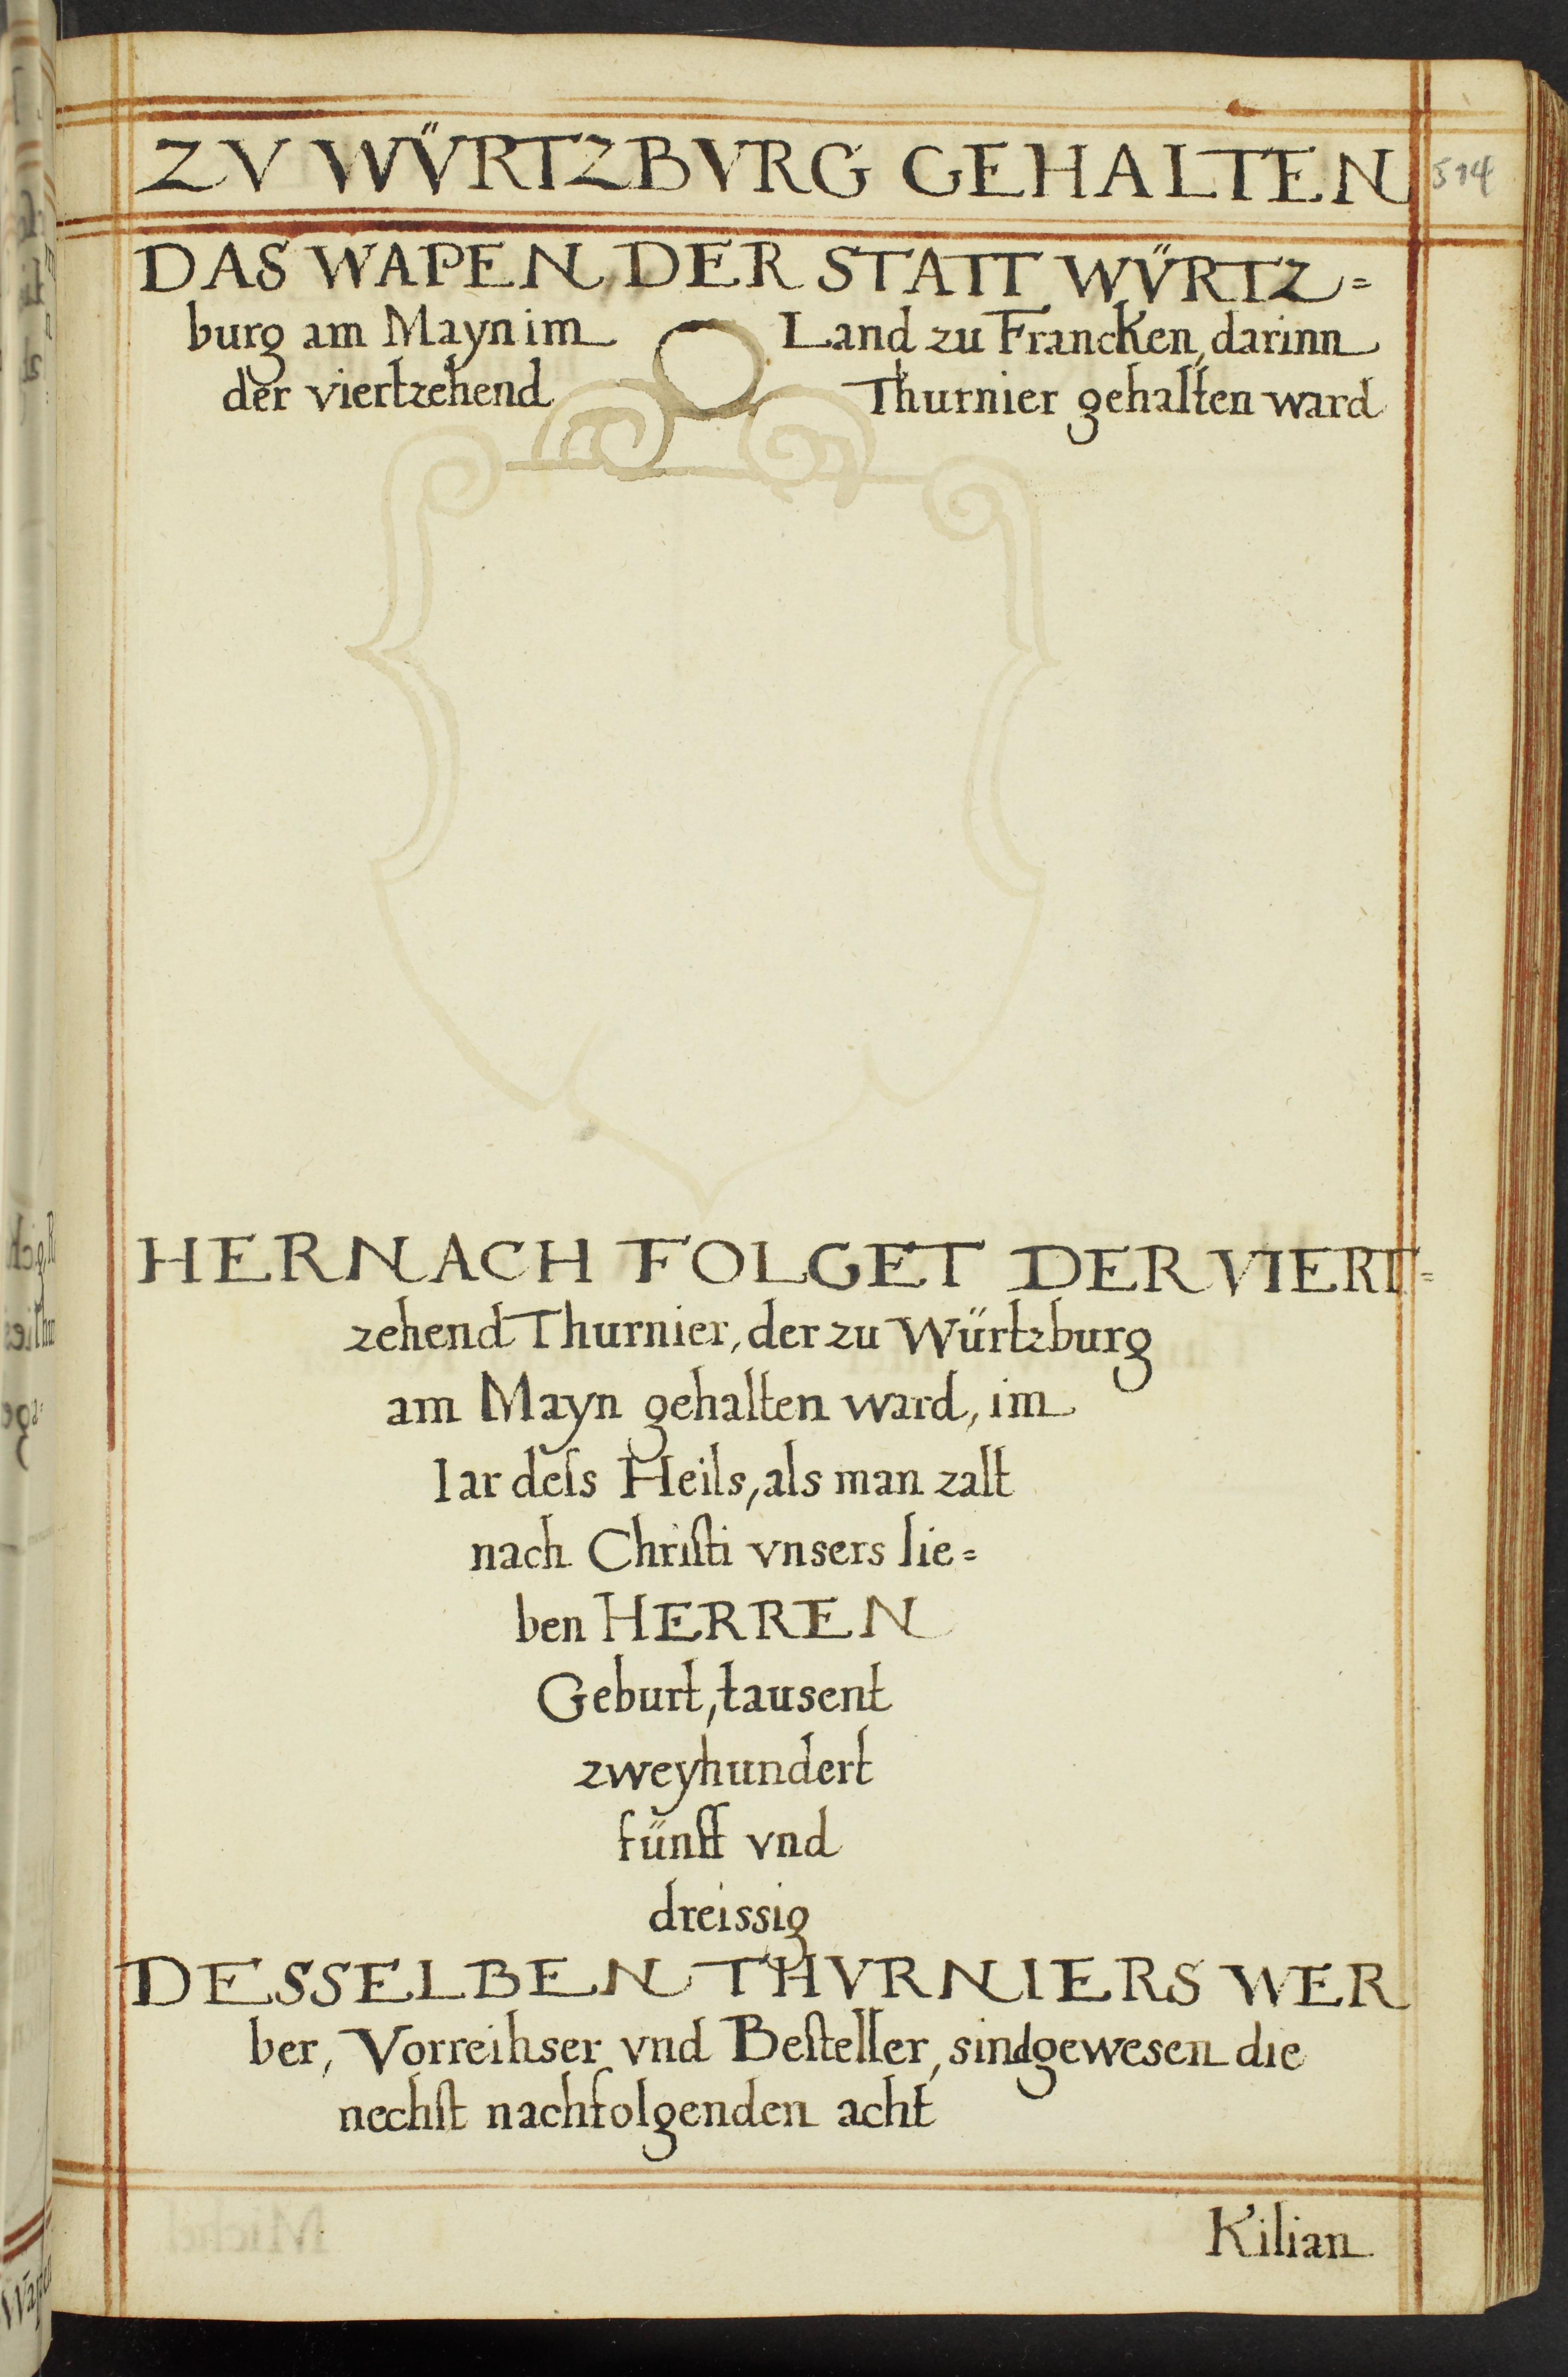 ZV WÜRTZBVRG GEHALTEN
514
DAS WAPEN DER STATT WÜRTZ=
burg am Mayn im Land zu Francken, darinn
der viertzehend Thurnier gehalten ward
HERNACH FOLGET DER VIERT=
zehend Thurnier, der zu Würtzburg
am Mayn gehalten ward, im
Iar deſs Heils, als man zalt
nach Chriſti vnsers lie=
ben HERREN
Geburt, tausent
zweyhundert
fünff vnd
dreissig
DESSELBEN THVRNIERS WER
ber, Vorreihser vnd Beſteller, sind gewesen die
nechſt nachfolgenden acht
Kilian